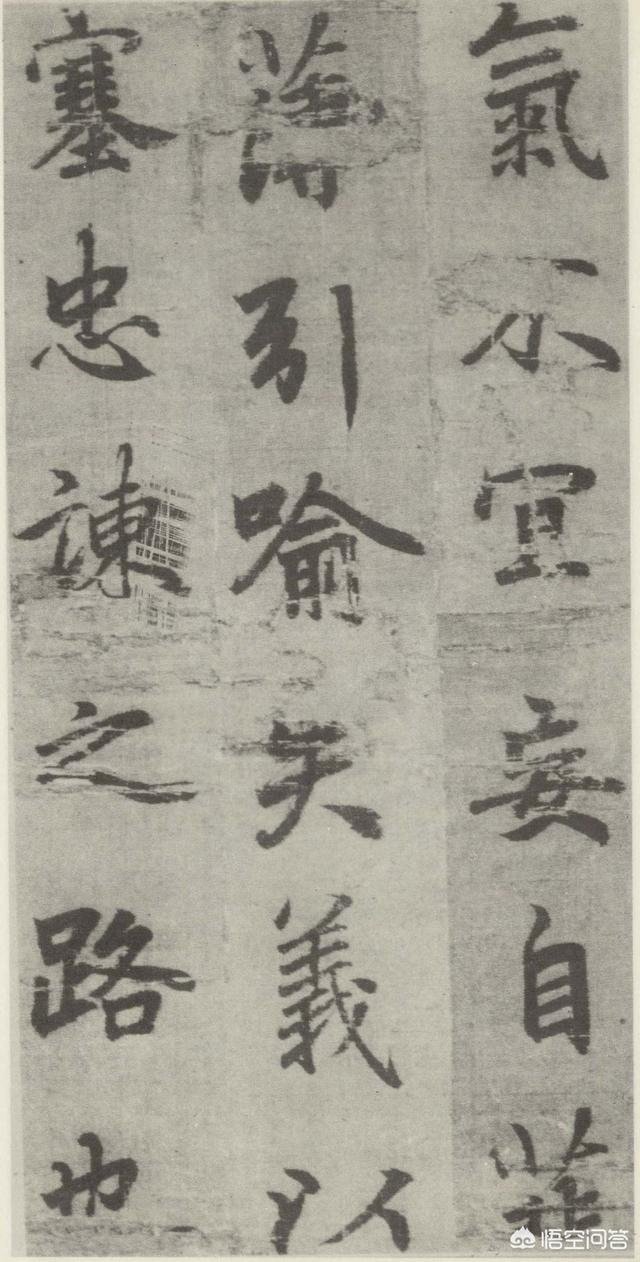 氣不宜妄自菲
薄引喻失義以
塞忠諫之路也
悟空问答